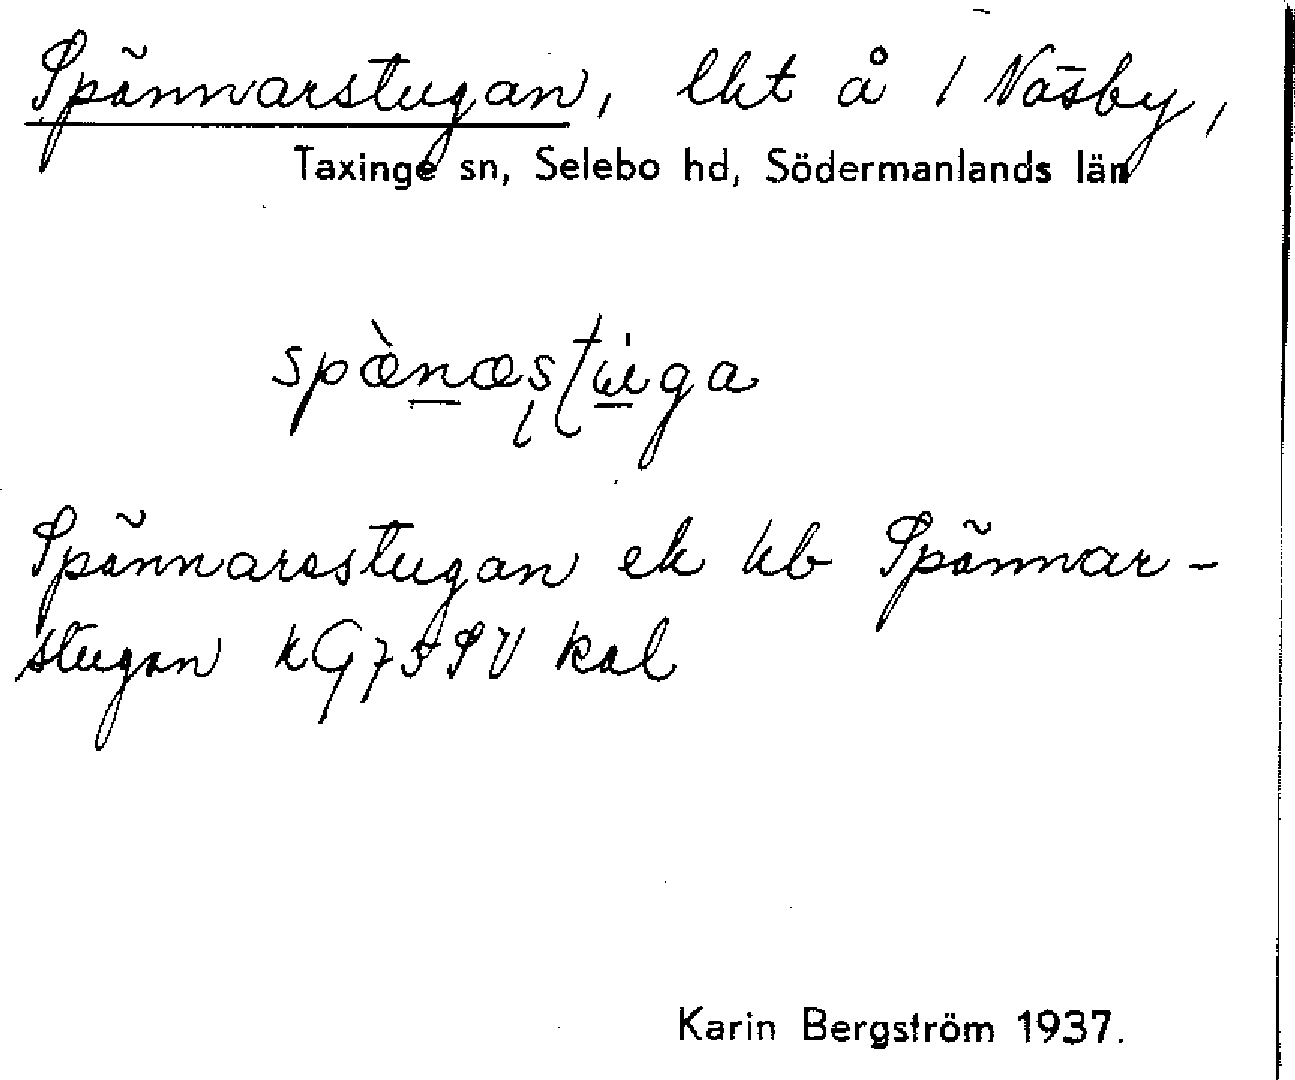 Spännarstugan, lht å 1 Näsby,
Taxinge sn, Selebo hd, Södermanlands län
Spännarestugan ek kb Spännar-
stugan kG75SV kal
Karin Bergström 1937.